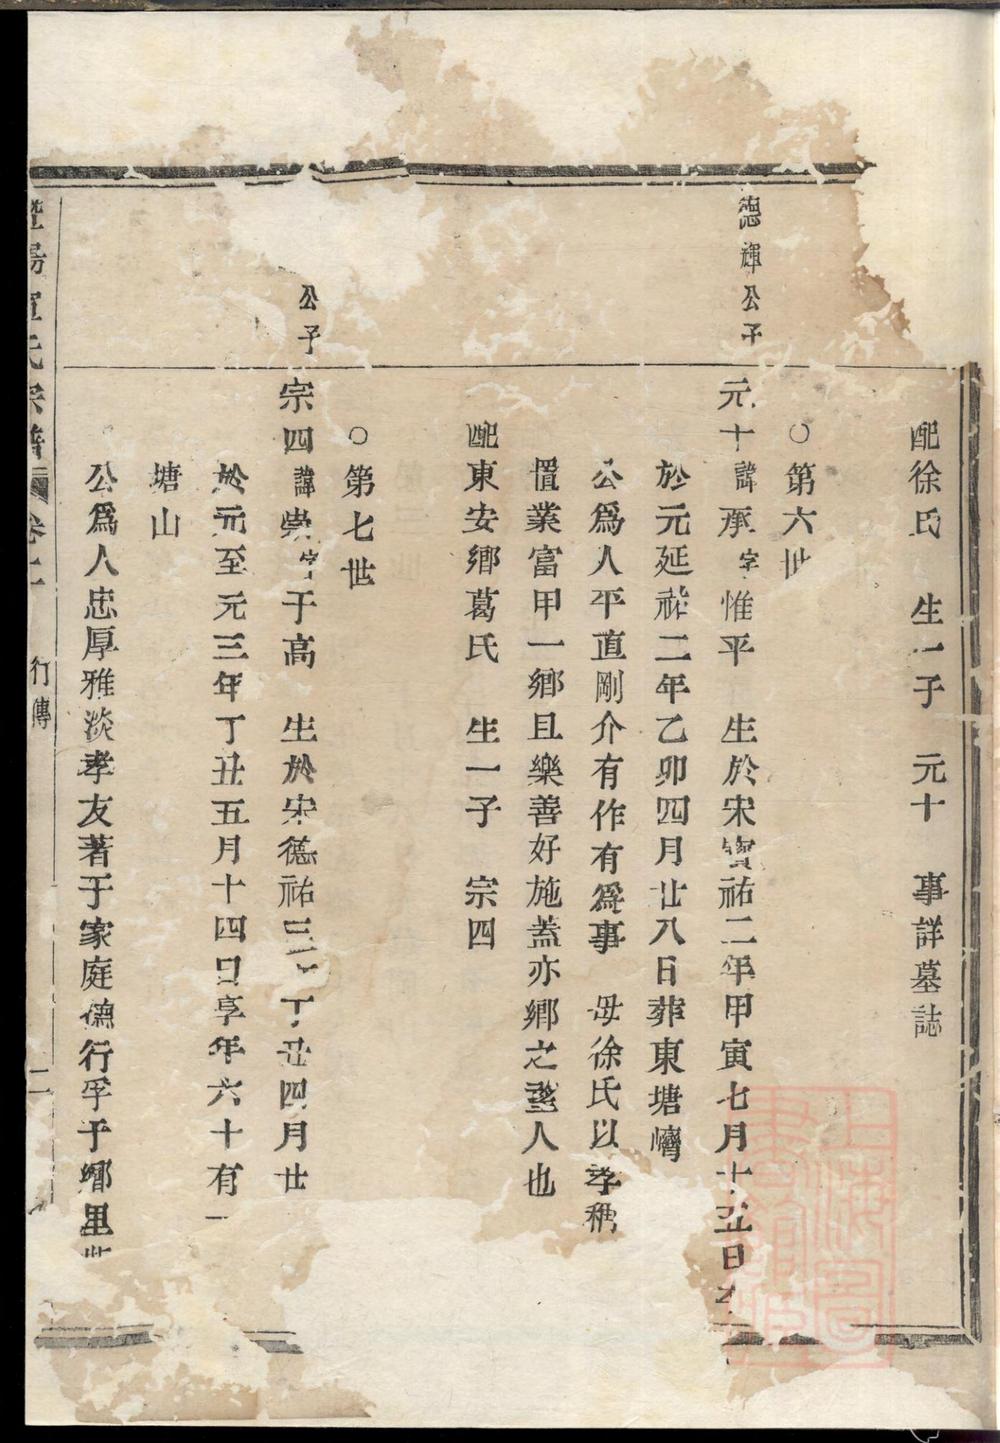 配徐氏　生一子　元十　事詳墓誌
○第六世
德輝公子
元十諱承字惟平　生於宋寶祐二年甲寅七月十五日
於元延祐二年乙卯四月廿八日葬東塘
公爲人平直剛介有作有爲事　母徐氏以孝稱
置業富甲一鄉且樂善好施蓋亦鄉之望人也
配東安鄉葛氏　生一子　宗四
○第七世
公子
宗四諱崇字于高　生於宋德祐三年丁丑四月廿
於元至元三年丁丑五月十四日享年六十有一
塘山
公爲人忠厚雅淡孝友著于家庭德行孚于鄉里
暨陽宣氏宗譜　卷二　行傳　二